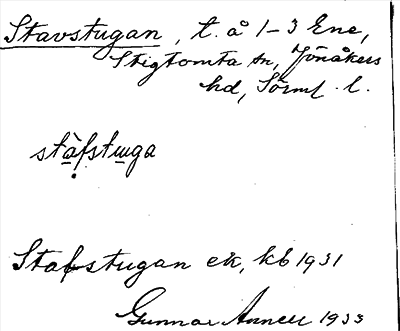 Stavstugan, t. å 1-3 Ene,
Stigtomta sn, Jönåkers
hd, Sörml. l.
stàfstuga
Stafstugan ek, kb 1931
Gunnar Annell 1933